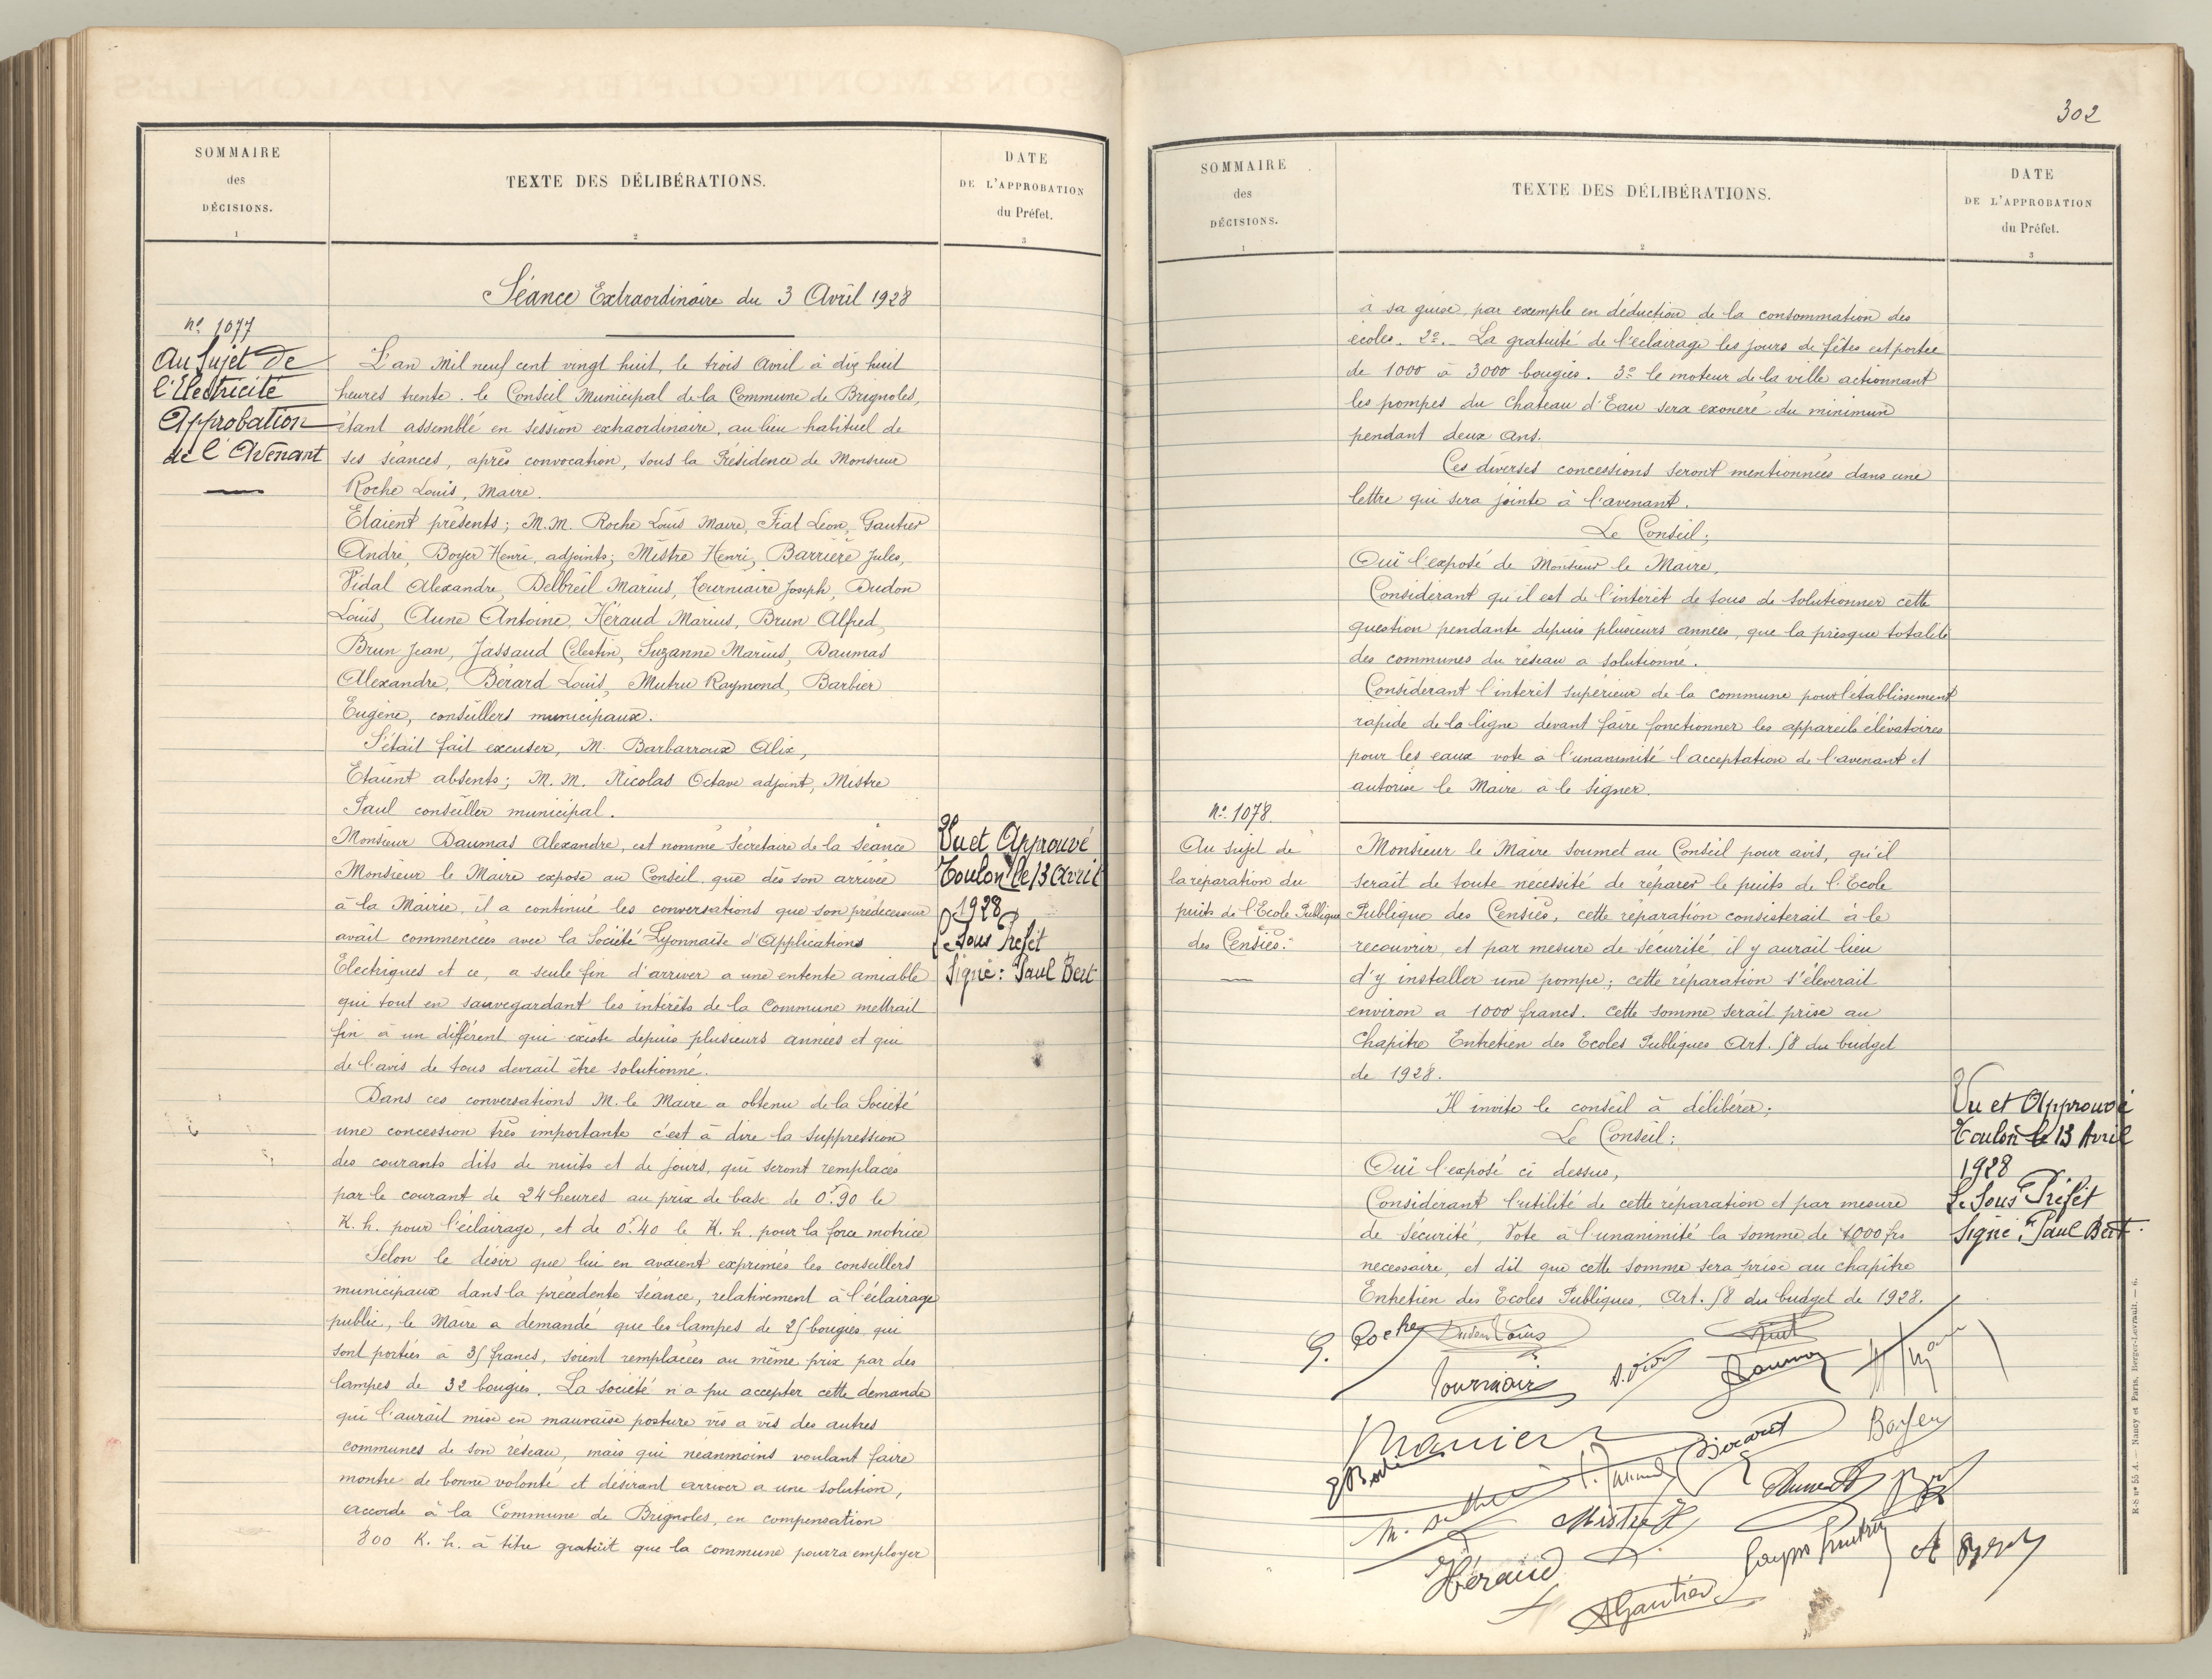 302
SOMMAIRE
des
DÉCISIONS.
1
TEXTE DES DÉLIBÉRATIONS.
2
DATE
DE L'APPROBATION
du Préfet.
3
Séance Extraordinaire du 3 Avril 1928
n° 1077
Au Sujet de
l'Electricité
Approbation
de l'Avenant
L'an Mil neuf cent vingt huit, le trois Avril à dix huit
heures trente. le Conseil Municipal de la Commune de Brignoles,
étant assemblé en session extraordinaire, au lieu habituel de
ses séances, après convocation, sous la Présidence de Monsieur
Roche Louis, Maire.
Etaient présents; M.M. Roche Louis Maire, Fiat Léon, Gautier
André, Boyer Henri, adjoints; Mistre Henri, Barrière Jules,
Vidal Alexandre, Delbreil Marius, Tourniaire Joseph, Dudon
Louis, Aune Antoine, Héraud Marius, Brun Alfred,
Brun Jean, Jassaud Célestin, Suzanne Marius, Daumas
Alexandre, Bérard Louis, Mutru Raymond, Barbier
Eugène, conseillers municipaux.
S'était fait excuser, M. Barbarroux Alix,
Etaient absents; M.M. Nicolas Octave adjoint, Mistre
Paul conseiller municipal.
Monsieur Daumas Alexandre, est nommé Secrétaire de la Séance
Monsieur le Maire expose au Conseil que dès son arrivée
à la Mairie, il a continué les conversations que son prédécesseur
avait commencées avec la Société Lyonnaise d'Applications
Electriques et ce, a seule fin d'arriver a une entente amiable
qui tout en sauvegardant les intérêts de la Commune mettrait
fin à un différent qui existe depuis plusieurs années et que
de l'avis de tous devrait être solutionné.
Dans ces conversations M. le Maire a obtenu de la Société
une concession très importante c'est à dire la suppression
des courants dits de nuits et de jours, qui seront remplacés
par le courant de 24 heures au prix de base de 0f.90 le
K.h. pour l'éclairage, et de 0f.40 le K.h. pour la force motrice
Selon le désir que lui en avaient exprimés les conseillers
municipaux dans la précédente séance, relativement à l'éclairage
public, le Maire a demandé que les lampes de 25 bougies qui
sont portées à 35 francs, soient remplacées au même prix par des
lampes de 32 bougies. La société n'a pu accepter cette demande
qui l'aurait mise en mauvaise posture vis a vis des autres
communes de son réseau, mais qui néanmoins voulant faire
montre de bonne volonté et désirant arriver a une solution,
accorde à la Commune de Brignoles, en compensation
800 K.h. à titre gratuit que la commune pourra employer
Vu et Approuvé
Toulon le 13 Avril
1928
Le Sous Préfet
Signé: Paul Bert
SOMMAIRE
des
DÉCISIONS.
1
TEXTE DES DÉLIBÉRATIONS.
2
DATE
DE L'APPROBATION
du Préfet.
3
à sa guise, par exemple en déduction de la consommation des
écoles. 2°.- La gratuité de l'éclairage les jours de fêtes est portée
de 1000 à 3000 bougies. 3° le moteur de la ville actionnant
les pompes du Chateau d'Eau sera exonéré du minimun
pendant deux ans.
Ces diverses concessions seront mentionnées dans une
lettre qui sera jointe à l'avenant.
Le Conseil;
Ouï l'exposé de Monsieur le Maire,
Considérant qu'il est de l'intérêt de tous de solutionner cette
question pendante depuis plusieurs années, que la presque totalité
des communes du réseau a solutionné.
Considérant l'intérêt supérieur de la commune pour l'établissement
rapide de la ligne devant faire fonctionner les appareils élévatoires
pour les eaux vote à l'unanimité l'acceptation de l'avenant et
autorise le Maire à le signer.
N° 1078
Au sujet de
la réparation du
puits de l'Ecole Publique
des Censiès.
Monsieur le Maire soumet au Conseil pour avis, qu'il
serait de toute nécessité de réparer le puits de l'Ecole
Publique des Censiès, cette réparation consisterait à le
recouvrir, et par mesure de sécurité il y aurait lieu
d'y installer une pompe; cette réparation s'éleverait
environ a 1000 francs. cette somme serait prise au
Chapitre Entretien des Ecoles Publiques Art. 58 du budget
de 1928.
Il invite le conseil à délibérer;
Le Conseil;
Ouï l'exposé ci dessus,
Considérant l'utilité de cette réparation et par mesure
de sécurité, Vote à l'unanimité la somme de 1000 frs
nécessaire, et dit que cette somme sera prise au chapitre
Entretien des Ecoles Publiques, Art. 58 du budget de 1928.
Vu et Approuvé
Toulon le 13 Avril
1928
Le Sous Préfet
Signé: Paul Bert.
Roche Dudon Louis
Tourniaire Daumas
Bérard Boyer
Mistre H
Héraud
A Gautier
R-S n° 55 A. — Nancy et Paris, Berger-Levrault. — 6.